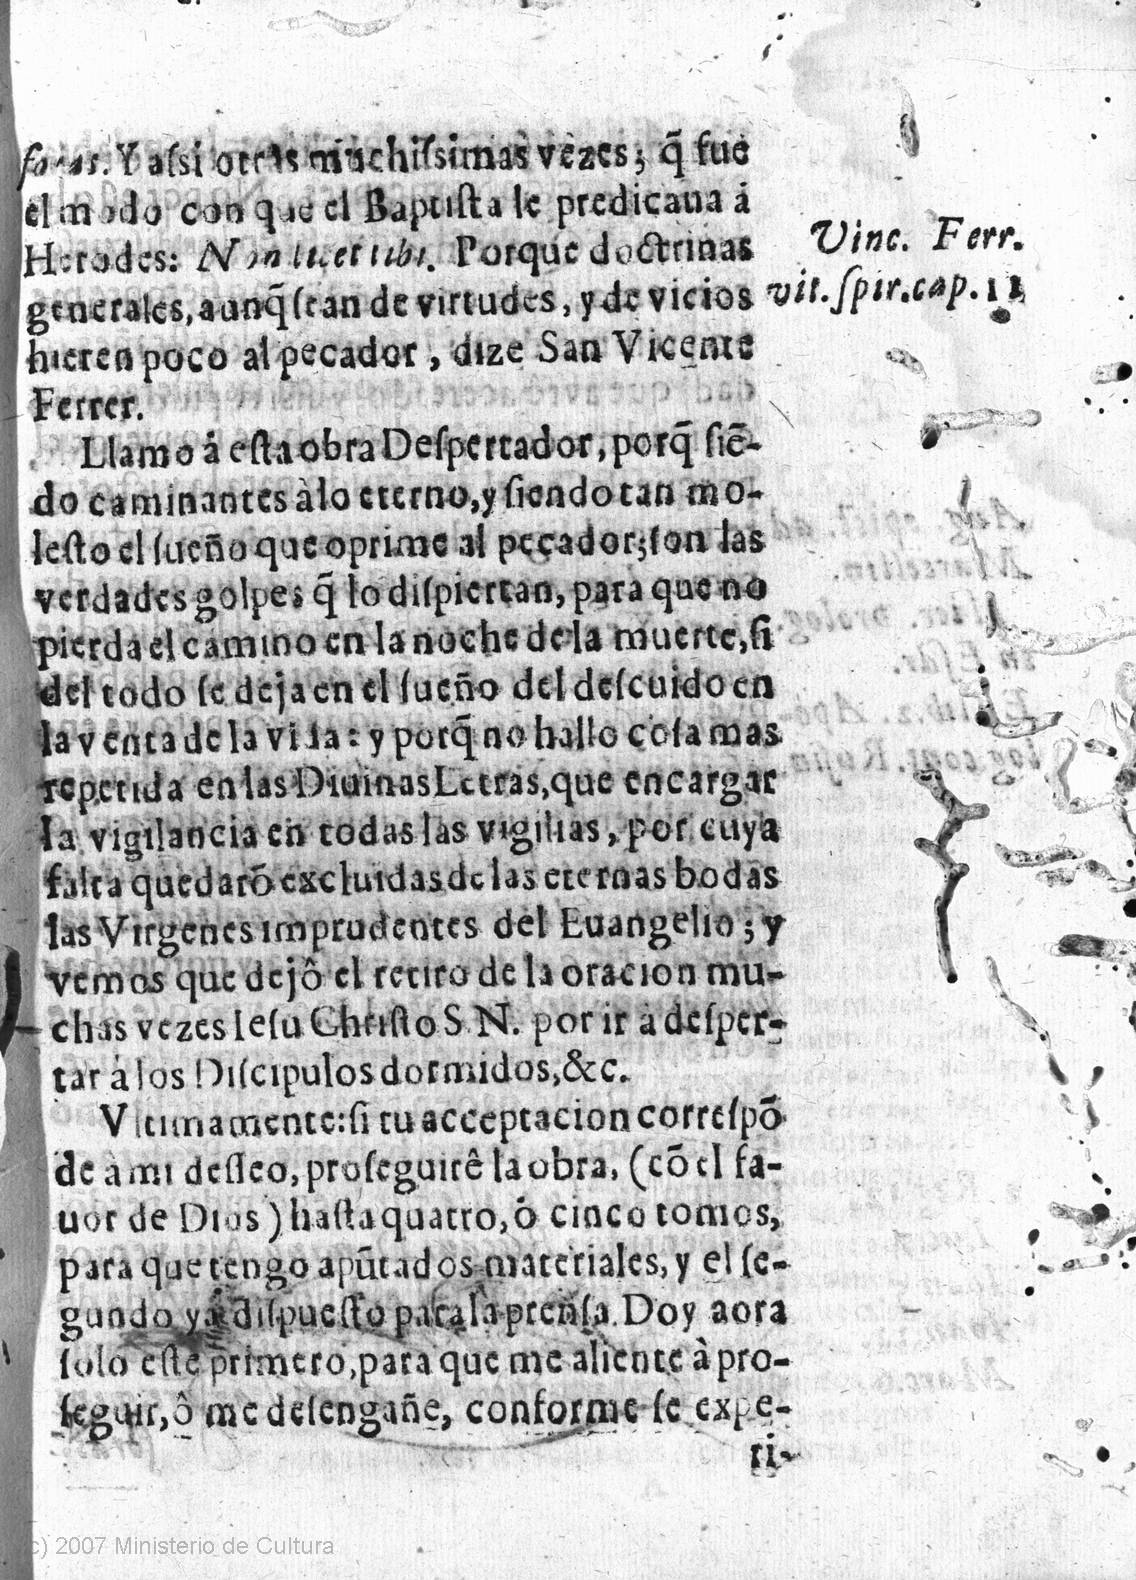 foras. Y aſsi otras muchiſsimas vèzes; q̃ fue
el modo con que el Baptiſta le predicaua á
Herodes: Non licet tibi. Porque doctrinas
generales, aunq̃ ſean de virtudes, y de vicios
hieren poco al pecador, dize San Vicente
Ferrer.
Vinc. Ferr.
vit. ſpir. cap. 11
Llamo á eſta obra Deſpertador, porq̃ ſiẽ-
do caminantes à lo eterno, y ſiendo tan mo-
leſto el ſueño que oprime al pecador; ſon las
verdades golpes q̃ lo diſpiertan, para que no
pierda el camino en la noche de la muerte, ſi
del todo ſe deja en el ſueño del deſcuido en
la venta de la vida: y porq̃ no hallo coſa mas
repetida en las Diuinas Letras, que encargar
la vigilancia en todas las vigilias, por cuya
falta quedarõ excluidas de las eternas bodas
las Virgenes imprudentes del Euangelio; y
vemos que dejô el retiro de la oracion mu-
chas vezes Ieſu Chriſto S. N. por ir à deſper-
tar à los Diſcipulos dormidos, &c.
Vltimamente: ſi tu acceptacion correſpõ
de à mi deſſeo, proſeguirê la obra, (cõ el fa-
uor de Dios) haſta quatro, ò cinco tomos,
para que tengo apũtados materiales, y el ſe-
gundo ya diſpueſto para la prenſa. Doy aora
ſolo eſte primero, para que me aliente à pro-
ſeguir, ô me deſengañe, conforme ſe expe-
ri-
(c) 2007 Ministerio de Cultura